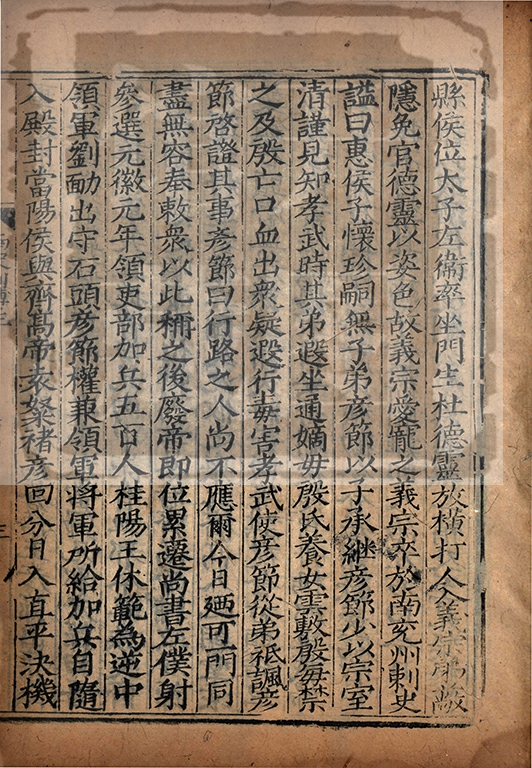 縣侯位太子左衞率坐門生杜德靈放橫打人義宗第蔽
隱免官德靈以姿色故義宗愛寵之義宗卒於南兗州刺史
諡曰惠侯子懷珍嗣無子弟彦節以子承継彦節少以宗室
清謹見知孝武時其弟遐坐通嫡毋殷氏養女雲敷殷毋禁
之及殷亡口血出衆疑遐行毒害孝武使彦節從弟祗諷彦
節啓證其事彦節曰行路之人尚不應爾今日廼可一門同
盡無容奉敕衆以此稱之後廢帝即位累遷尚書左僕射
參選元徽元年領吏部加兵五百人桂陽王休範為逆中
領軍劉勔出守石頭彦節權兼領軍將軍所給加兵自隨
入殿封當陽侯與齊髙帝袁粲褚彦回分日入直平決機